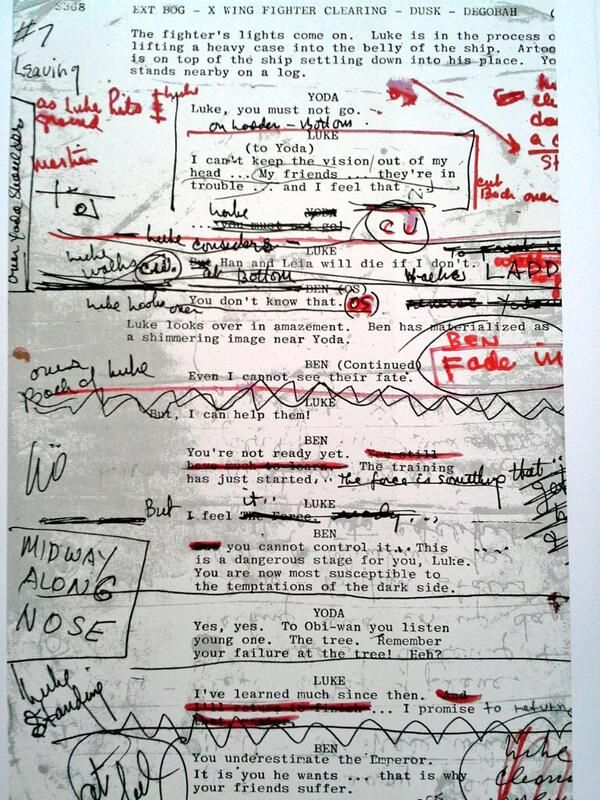 S368 EXT BOG - X WING FIGHTER CLEARING - DUSK - DEGOBAH
#7
Leaving
The fighter's lights come on. Luke is in the process o
lifting a heavy case into the belly of the ship. Artoo
is on top of the ship settling down into his place. Yo
stands nearby on a log.
as Luke hits
ground
YODA
Luke, you must not go.
on ladder - Bottom
LUKE
(to Yoda)
I can't keep the vision out of my
head ... My friends ... they're in
trouble ... and I feel that
cut
Back over
over Yoda Shoulder
YODA
You must not go!
CU
Luke
considers
LUKE
Luke
walks
But Han and Leia will die if I don't.
at Bottom
LADD
BEN (OS)
Luke looks over
You don't know that.
OS
Luke looks over in amazement. Ben has materialized as
a shimmering image near Yoda.
BEN
Fade in
BEN (Continued)
Even I cannot see their fate.
over
Back of Luke
LUKE
But, I can help them!
BEN
You're not ready yet. You still
have much to learn. The training
has just started... The force is something that ..
LUKE
But I feel The Force
it...
BEN
But you cannot control it... This
is a dangerous stage for you, Luke.
You are now most susceptible to
the temptations of the dark side.
MIDWAY
ALONG
NOSE
YODA
Yes, yes. To Obi-wan you listen
young one. The tree. Remember
your failure at the tree! Eeh?
LUKE
Luke
Standing
I've learned much since then. And
I'll return to finish ... I promise to return
BEN
You underestimate the Emperor.
It is you he wants ... that is why
your friends suffer.
Luke